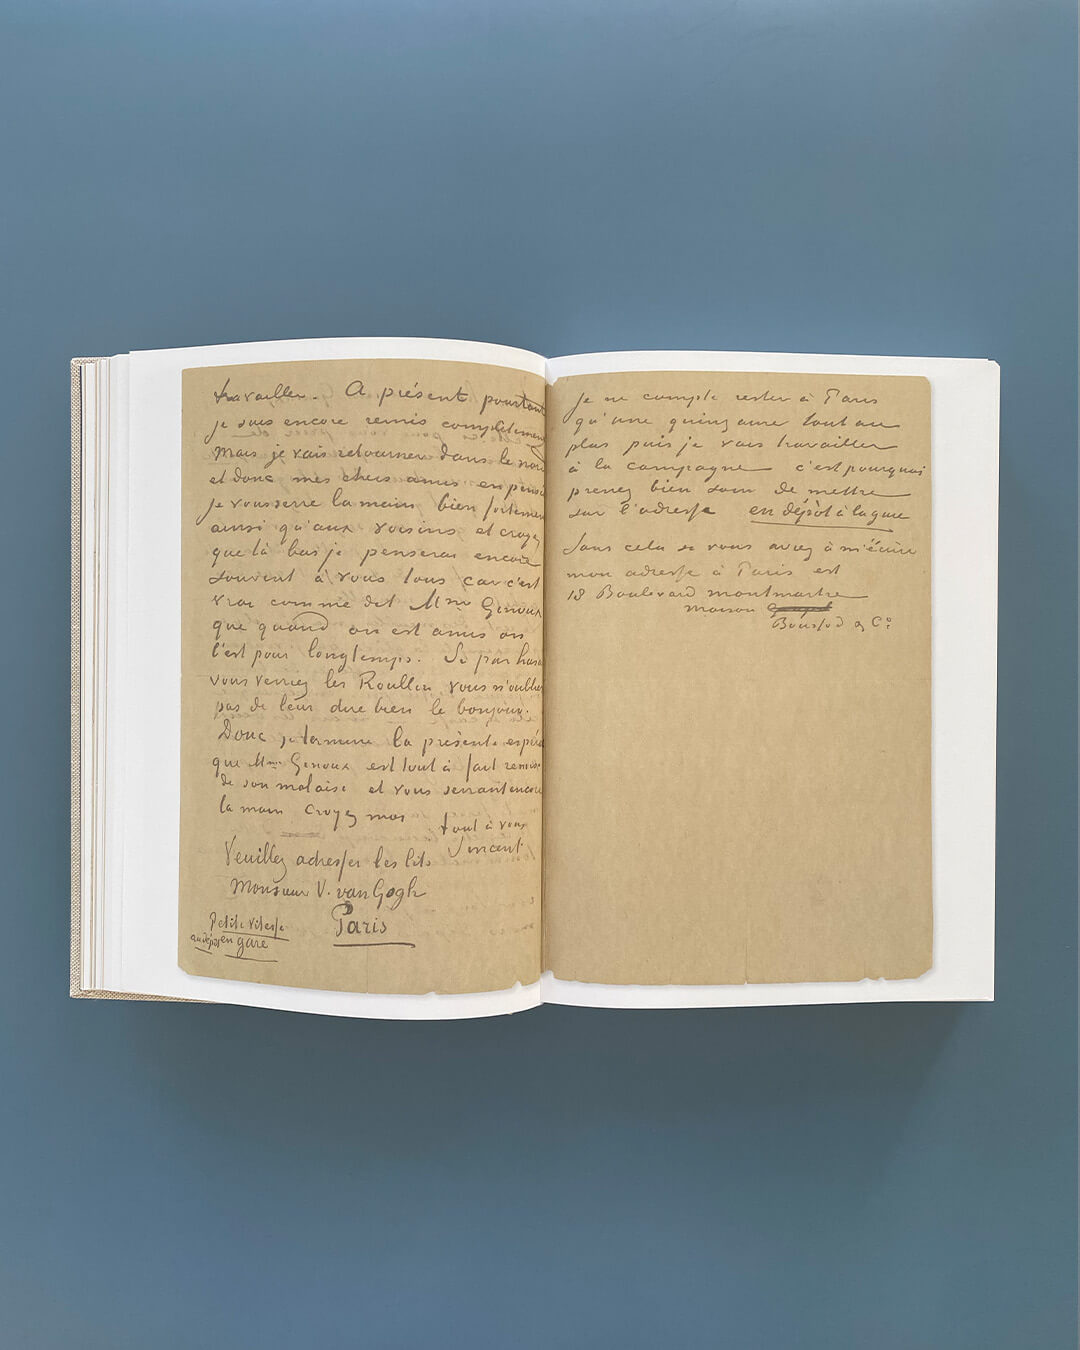 travailler. A présent pourtant
je suis encore remis complètement
mais je vais retourner dans le nord
et donc mes chers amis en pensée
je vous serre la main bien fortement
ainsi qu'aux voisins et croyez
que là bas je penserai encore
souvent à vous tous car c'est
vrai comme dit Mme Genoux
que quand on est amis on
l'est pour longtemps. Si par hasa
vous verriez les Roullin vous n'oublier
pas de leur dire bien le bonjour.
Donc je termine la présente espér
que Mme Genoux est tout à fait remise
de son malaise et vous serrant encore
la main croyez moi
tout à vous
Vincent
Veuillez adresser les lits
Monsieur V. van Gogh
Paris
Petite Vitesse
en gare
je ne compte rester à Paris
qu'une quinzaine tout au
plus puis je vais travailler
à la campagne c'est pourquoi
prenez bien soin de mettre
sur l'adresse en dépôt à la gare
Sans cela si vous aviez à m'écrire
mon adresse à Paris est
18 Boulevard montmartre
maison
Boussod & Co